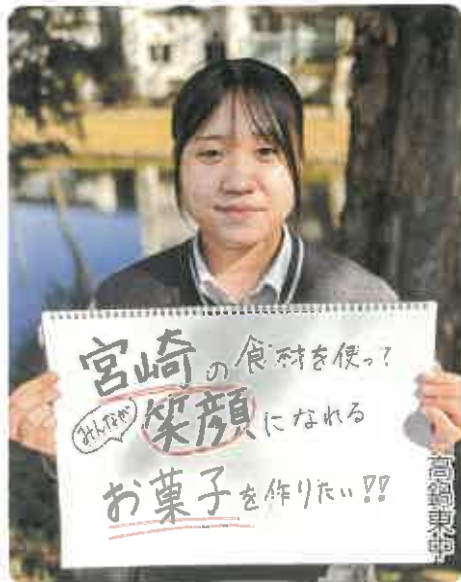 宮崎の食材を使って
みんなが
笑顔になれる
お菓子を作りたい!!
高鍋東中